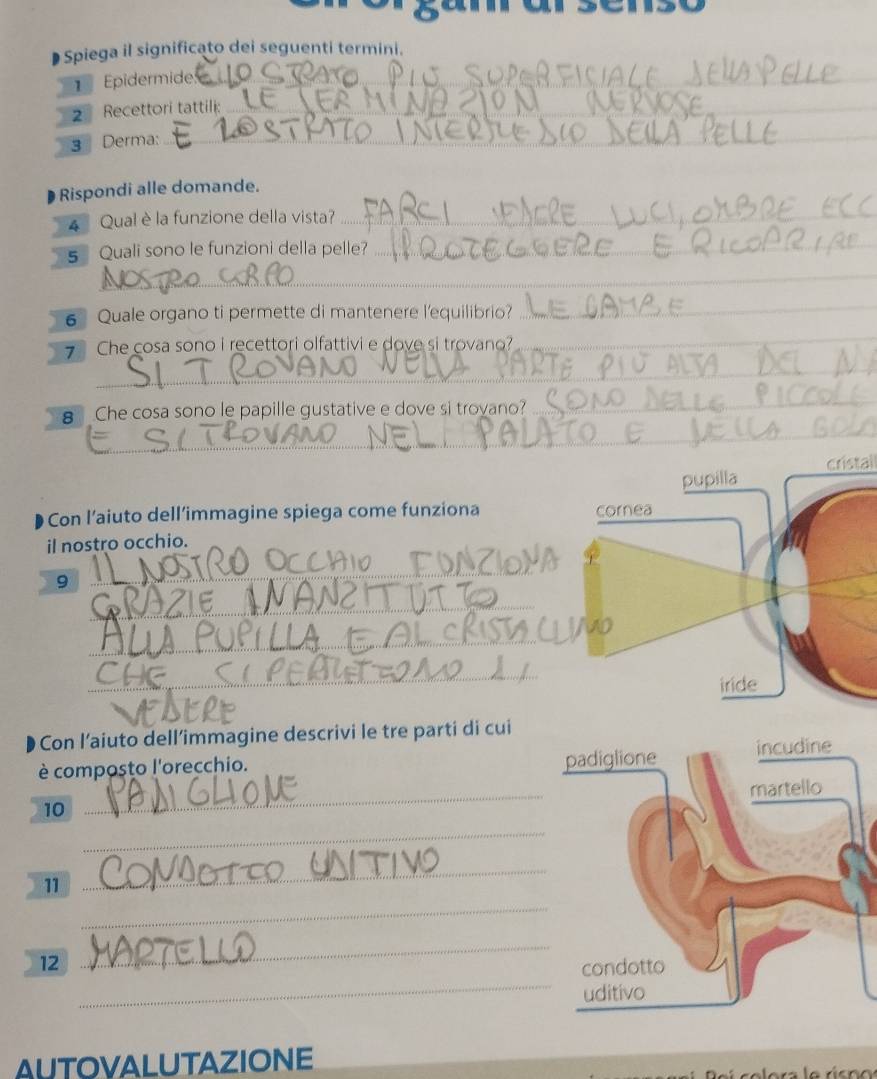 Spiega il significato dei seguenti termini.
1 Epidermide: È LO STRATO PIÙ SUPERFICIALE DELLA PELLE
2 Recettori tattili: LE TERMINAZION NERVOSE
3 Derma: E LO STRATO INTERMEDIO DELLA PELLE
Rispondi alle domande.
4 Qual è la funzione della vista? FARCI VEDERE LUCI, OMBRE ECC
5 Quali sono le funzioni della pelle? PROTEGGERE E RICOPRIRE
NOSTRO CORPO
6 Quale organo ti permette di mantenere l'equilibrio? LE GAMBE
7 Che cosa sono i recettori olfattivi e dove si trovano?
SI TROVANO NELLA PARTE PIÙ ALTA DEL
8 Che cosa sono le papille gustative e dove si trovano? SONO DELLE PICCOLE
E SI TROVANO NEL PALATO E DELLA GOLA
pupilla
cristal
cornea
Con l'aiuto dell'immagine spiega come funziona
il nostro occhio.
9 IL NOSTRO OCCHIO FUNZIONA
GRAZIE INANZITUTTO
ALLA PUPILLA E AL CRISTALLINO
CHE CI PERMETTONO DI
VEDERE
iride
Con l'aiuto dell'immagine descrivi le tre parti di cui
è composto l'orecchio.
padiglione
incudine
martello
10 PADIGLIONE
11 CONDOTTO UDITIVO
12 MARTELLO
condotto
uditivo
AUTOVALUTAZIONE